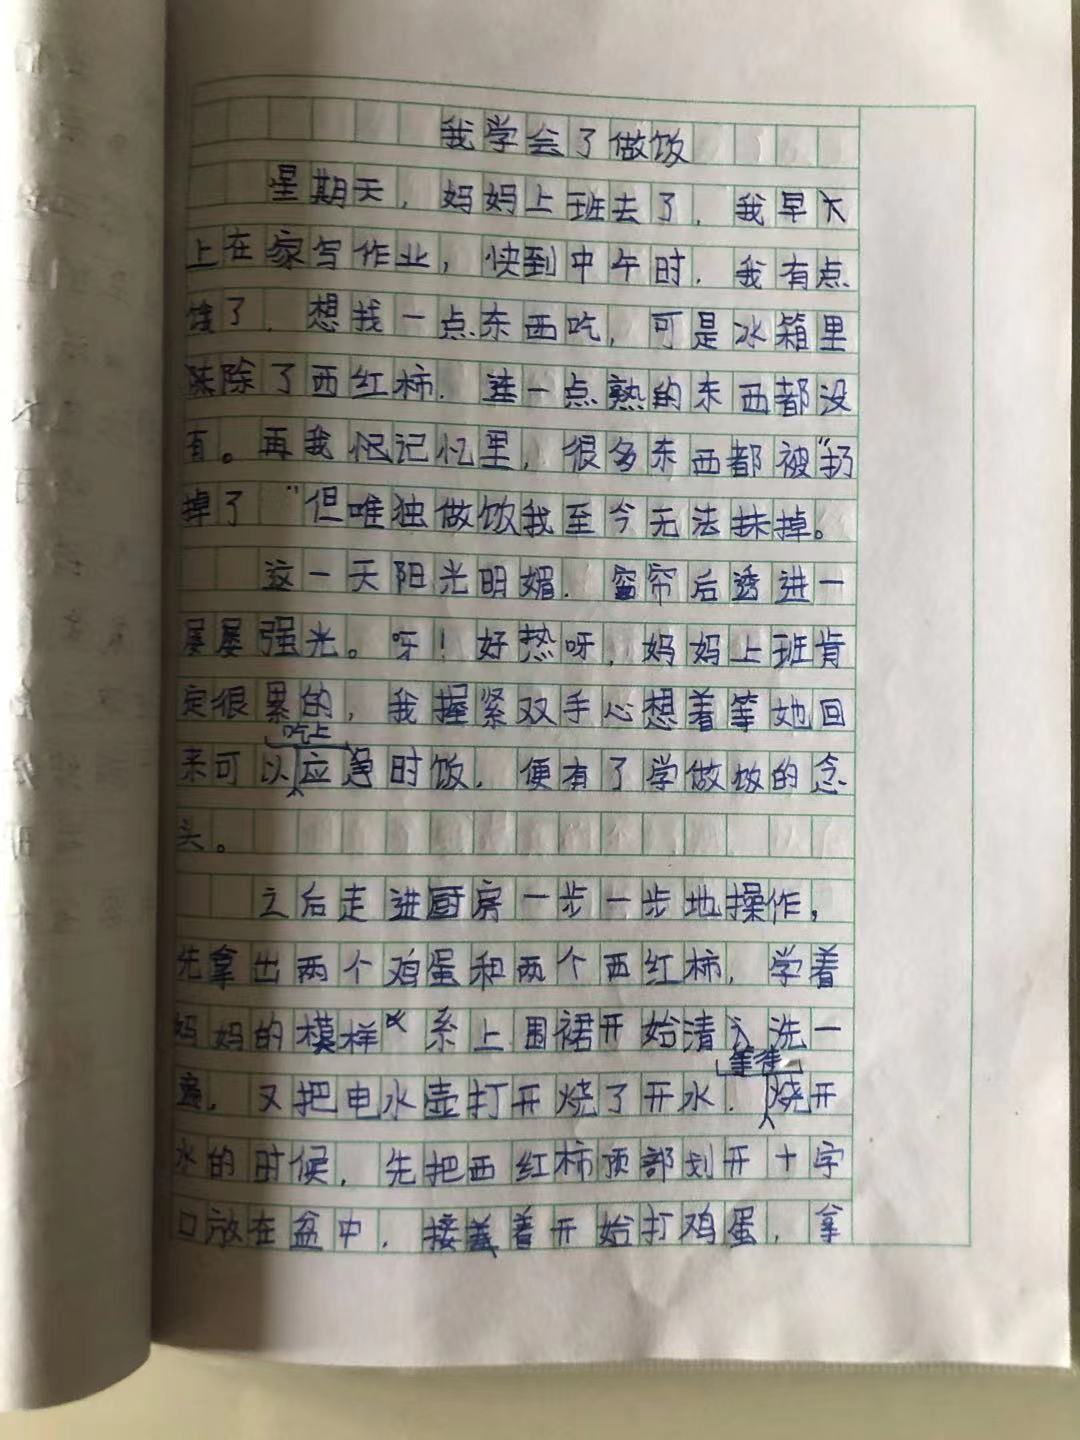 我学会了做饭
星期天，妈妈上班去了，我早
上在家写作业，快到中午时，我有点
饿了，想找一点东西吃，可是冰箱里
除了西红柿，连一点熟的东西都没
有。再我记忆里，很多东西都被“扔
掉了”但唯独做饮我至今无法抹掉。
这一天阳光明媚，窗帘后透进一
屡屡强光。呀！好热呀，妈妈上班肯
定很累的，我握紧双手心想着等她回
来可以吃上应急时饭，便有了学做饭的念
头。
之后走进厨房一步一步地操作，
先拿出两个鸡蛋和两个西红柿，学着
妈妈的模样系上围裙开始清洗一
遍，又把电水壶打开烧了开水，等待烧开
水的时候，先把西红柿顶部划开十字
口放在盆中，接着开始打鸡蛋，拿